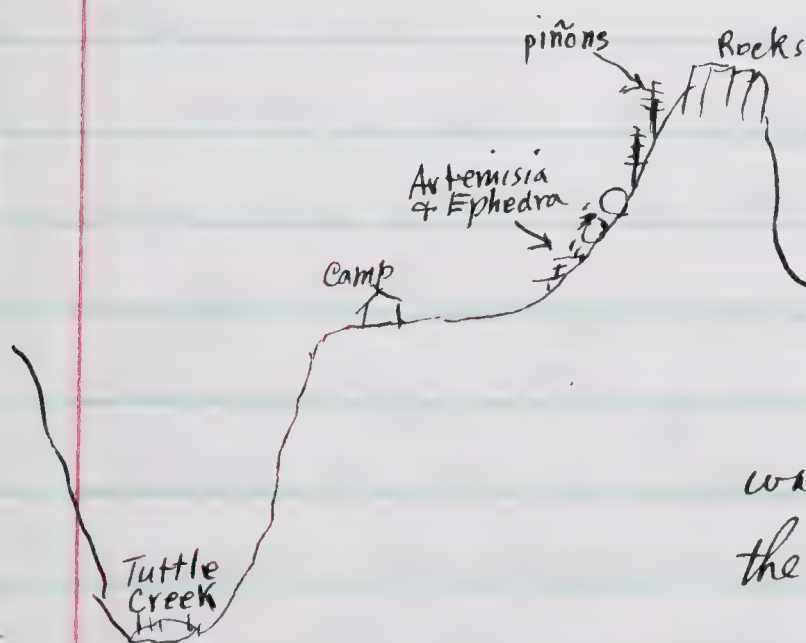 piñons
Rocks
Artemisia
& Ephedra
Camp
Tuttle
Creek
the